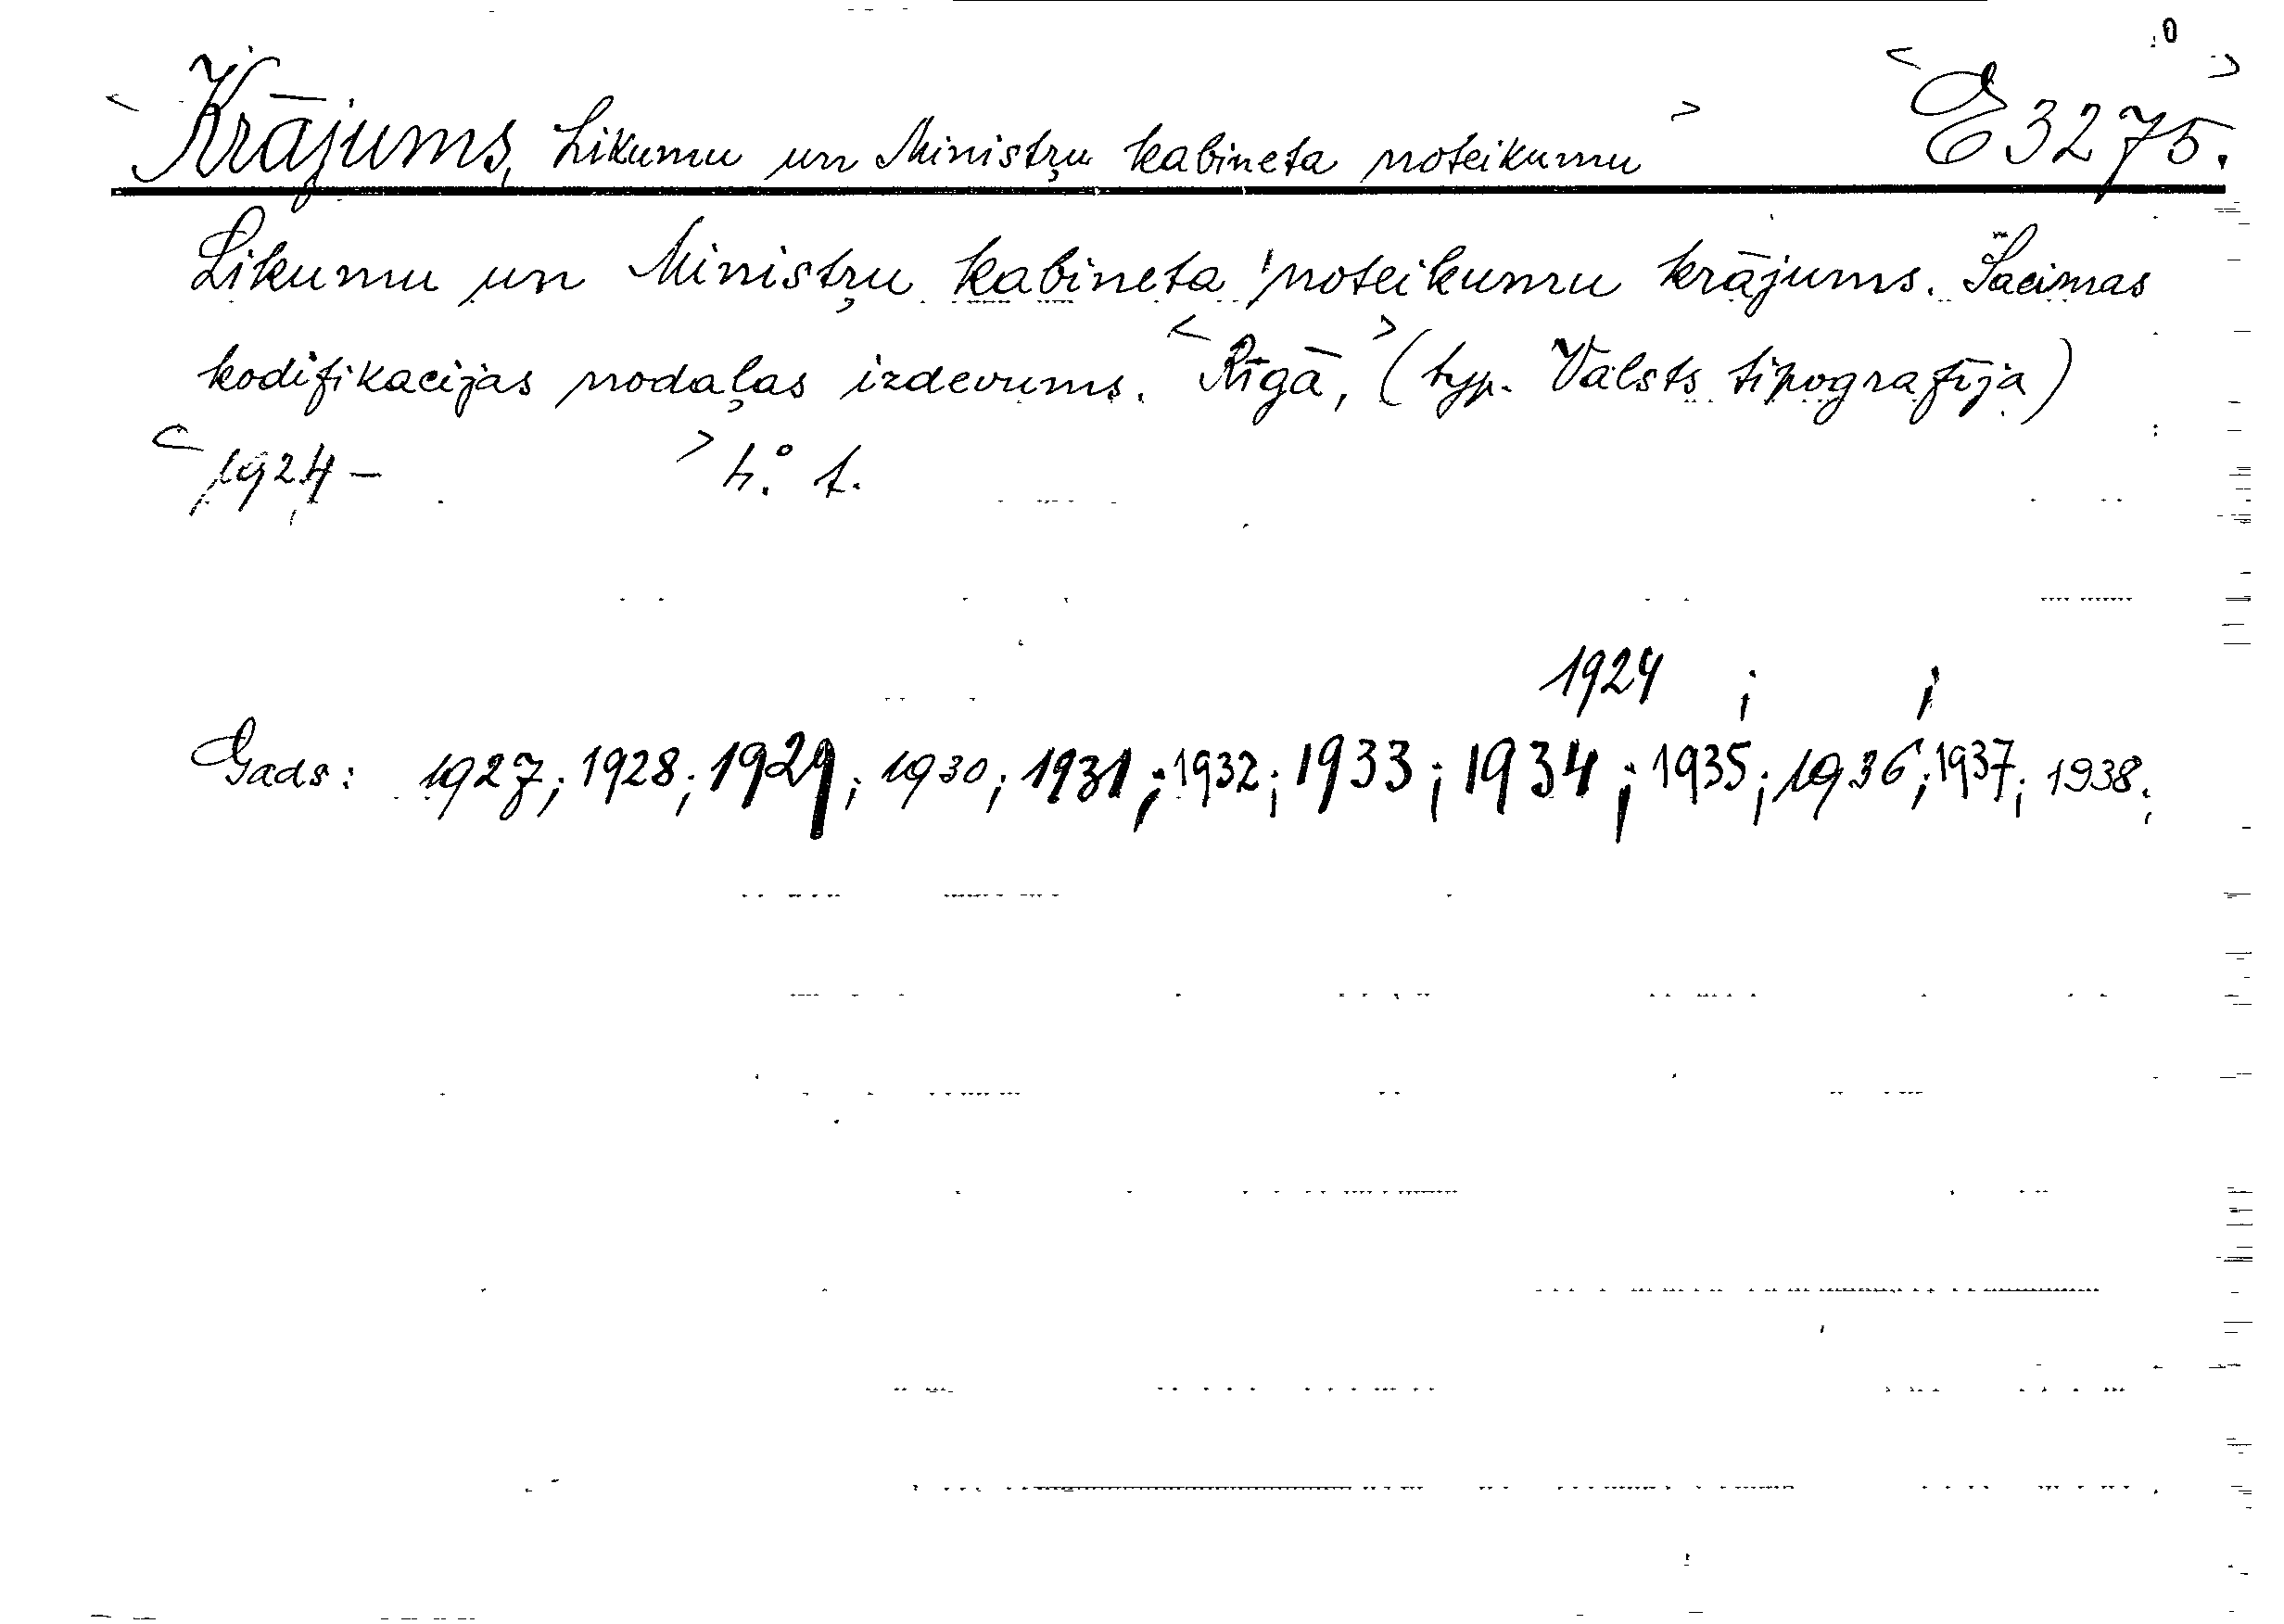 < Krājums, Likumu un Ministŗu kabineta noteikumu > < E 3275. >
Likumu un Ministŗu kabineta noteikumu krājums. Saeimas
kodifikacijas nodaļas izdevums. < Rīgā, > (typ. Valsts tipografija)
< 1924 – > 4° t.
1924 ; ;
Gads: 1927; 1928; 1929; 1930; 1931; 1932; 1933; 1934; 1935; 1936; 1937; 1938.;